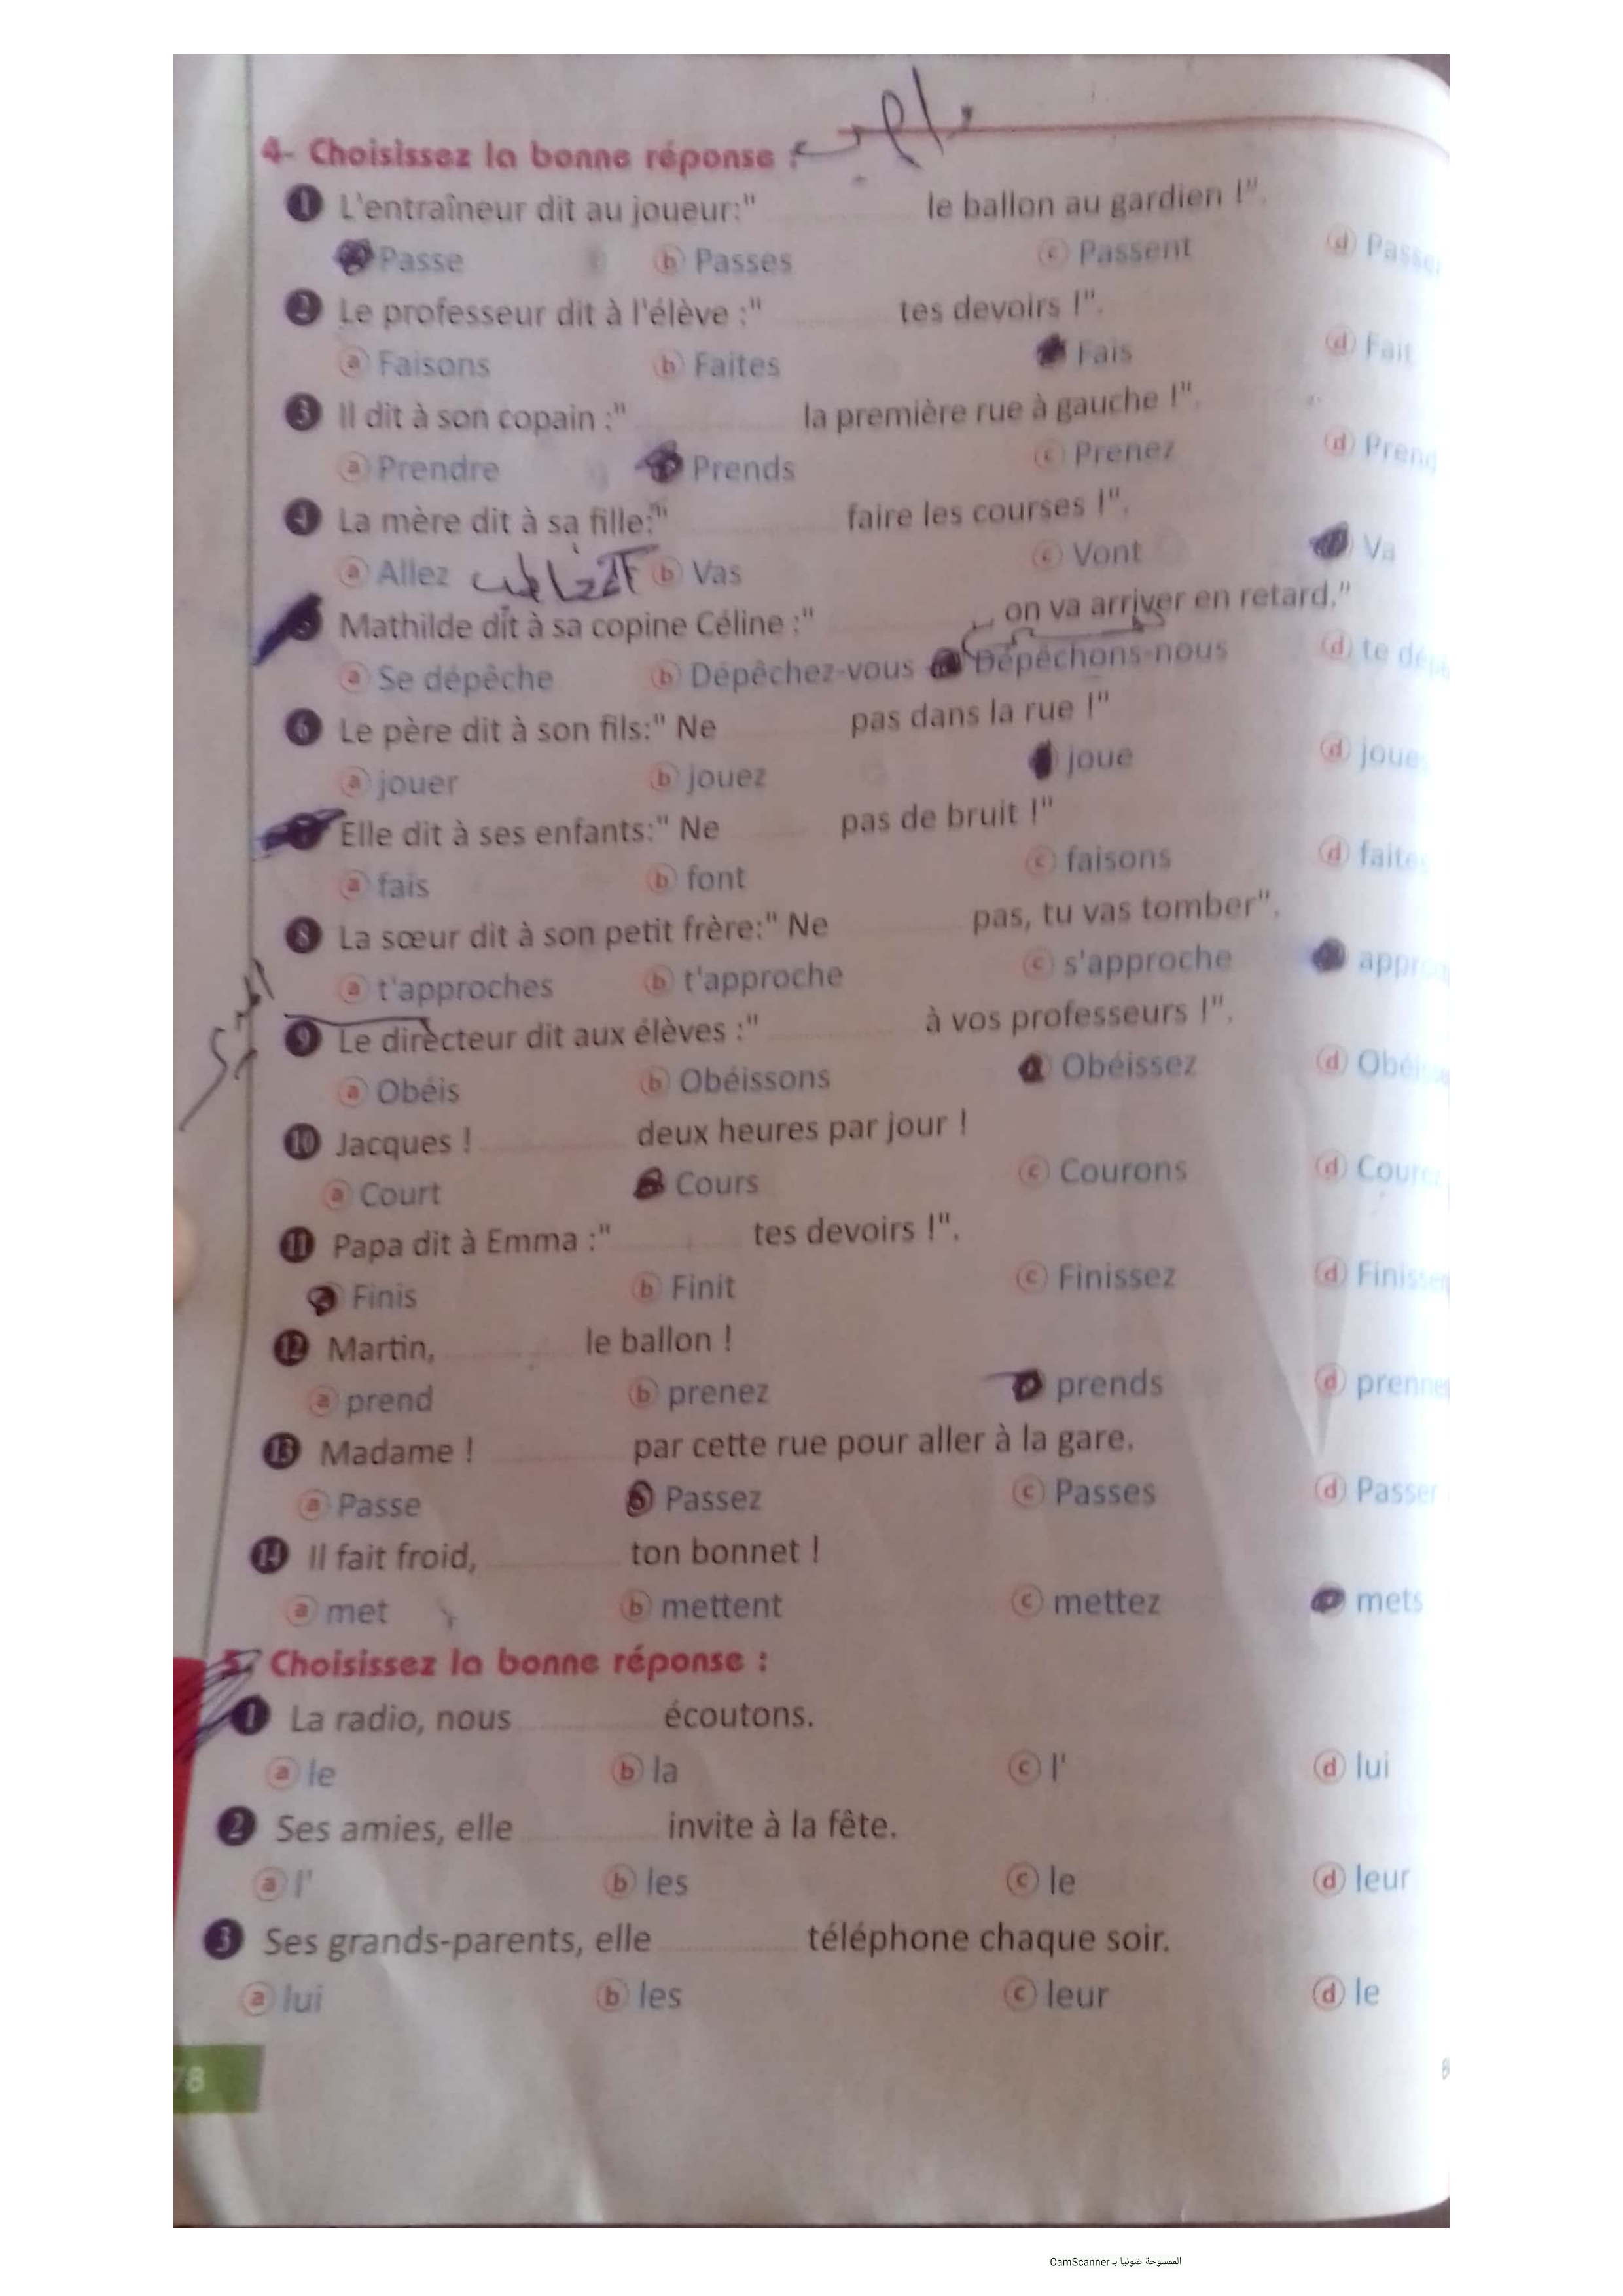 4- Choisissez la bonne réponse :
1 L'entraîneur dit au joueur:" le ballon au gardien !".
Passe b Passes c Passent d
2 Le professeur dit à l'élève :" tes devoirs !".
a Faisons b Faites Fais d Fait
3 Il dit à son copain :" la première rue à gauche !".
a Prendre Prends c Prenez d
4 La mère dit à sa fille:" faire les courses !".
a Allez b Vas c Vont Va
Mathilde dit à sa copine Céline :" , on va arriver en retard."
a Se dépêche b Dépêchez-vous Dépêchons-nous d te
6 Le père dit à son fils:" Ne pas dans la rue !"
a jouer b jouez joue d
7 Elle dit à ses enfants:" Ne pas de bruit !"
a fais b font c faisons d
8 La sœur dit à son petit frère:" Ne pas, tu vas tomber".
a t'approches b t'approche c s'approche
9 Le directeur dit aux élèves :" à vos professeurs !".
a Obéis b Obéissons Obéissez d
10 Jacques ! deux heures par jour !
a Court Cours c Courons d
11 Papa dit à Emma :" tes devoirs !".
Finis b Finit c Finissez d
12 Martin, le ballon !
a prend b prenez prends d
13 Madame ! par cette rue pour aller à la gare.
a Passe b Passez c Passes d Passer
14 Il fait froid, ton bonnet !
a met b mettent c mettez mets
5- Choisissez la bonne réponse :
1 La radio, nous écoutons.
a le b la c l' d lui
2 Ses amies, elle invite à la fête.
a l' b les c le d leur
3 Ses grands-parents, elle téléphone chaque soir.
a lui b les c leur d le
78
الممسوحة ضوئيا بـ CamScanner